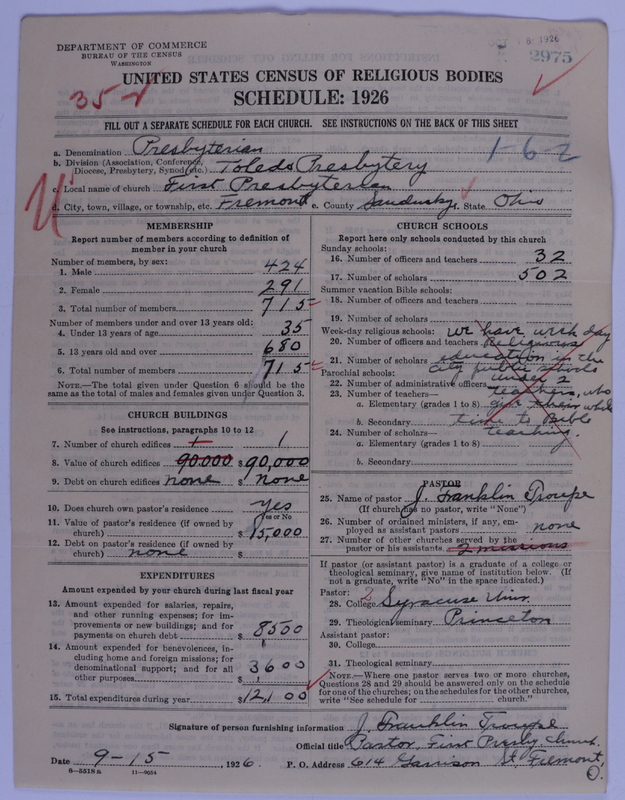 DEPARTMENT OF COMMERCE
BUREAU OF THE CENSUS
WASHINGTON
8 1926
2975
UNITED STATES CENSUS OF RELIGIOUS BODIES
SCHEDULE: 1926
35-2
FILL OUT A SEPARATE SCHEDULE FOR EACH CHURCH. SEE INSTRUCTIONS ON THE BACK OF THIS SHEET
a. Denomination Presbyterian
1-6-2
b. Division (Association, Conference, Diocese, Presbytery, Synod, etc.) Toledo Presbytery
c. Local name of church First Presbyterian
d. City, town, village, or township, etc. Fremont e. County Sandusky f. State Ohio
MEMBERSHIP
Report number of members according to definition of
member in your church
Number of members, by sex:
1. Male 424
2. Female 291
3. Total number of members 715
Number of members under and over 13 years old:
4. Under 13 years of age 35
5. 13 years old and over 680
6. Total number of members 715
NOTE.—The total given under Question 6 should be the
same as the total of males and females given under Question 3.
CHURCH BUILDINGS
See instructions, paragraphs 10 to 12
7. Number of church edifices 1 1
8. Value of church edifices 90.000 $90,000
9. Debt on church edifices none $ none
10. Does church own pastor's residence? yes
Yes or No
11. Value of pastor's residence (if owned by
church) $15,000
12. Debt on pastor's residence (if owned by
church) none $
EXPENDITURES
Amount expended by your church during last fiscal year
13. Amount expended for salaries, repairs,
and other running expenses; for im-
provements or new buildings; and for
payments on church debt $8500
14. Amount expended for benevolences, in-
cluding home and foreign missions; for
denominational support; and for all
other purposes $3600
15. Total expenditures during year $12,100
CHURCH SCHOOLS
Report here only schools conducted by this church
Sunday schools:
16. Number of officers and teachers 32
17. Number of scholars 502
Summer vacation Bible schools:
18. Number of officers and teachers
19. Number of scholars
Week-day religious schools: we have week day
20. Number of officers and teachers Religious
21. Number of scholars education in the
Parochial schools: city public schools
22. Number of administrative officers under 2
23. Number of teachers— teachers, who
a. Elementary (grades 1 to 8) give their whole
b. Secondary time to Bible
24. Number of scholars— teaching.
a. Elementary (grades 1 to 8)
b. Secondary
PASTOR
25. Name of pastor J. Franklin Troupe
(If church has no pastor, write "None")
26. Number of ordained ministers, if any, em-
ployed as assistant pastors none
27. Number of other churches served by the
pastor or his assistants 2 missions
If pastor (or assistant pastor) is a graduate of a college or
theological seminary, give name of institution below. (If
not a graduate, write "No" in the space indicated.)
Pastor:
28. College 2 Syracuse Univ.
29. Theological seminary Princeton
Assistant pastor:
30. College
31. Theological seminary
NOTE.—Where one pastor serves two or more churches,
Questions 28 and 29 should be answered only on the schedule
for one of the churches; on the schedules for the other churches,
write "See schedule for church."
Signature of person furnishing information J. Franklin Troupe
Official title Pastor, First Presby. Church.
Date 9-15, 1926. P. O. Address 614 Garrison St. Fremont, O.
8—5518a 11—9054